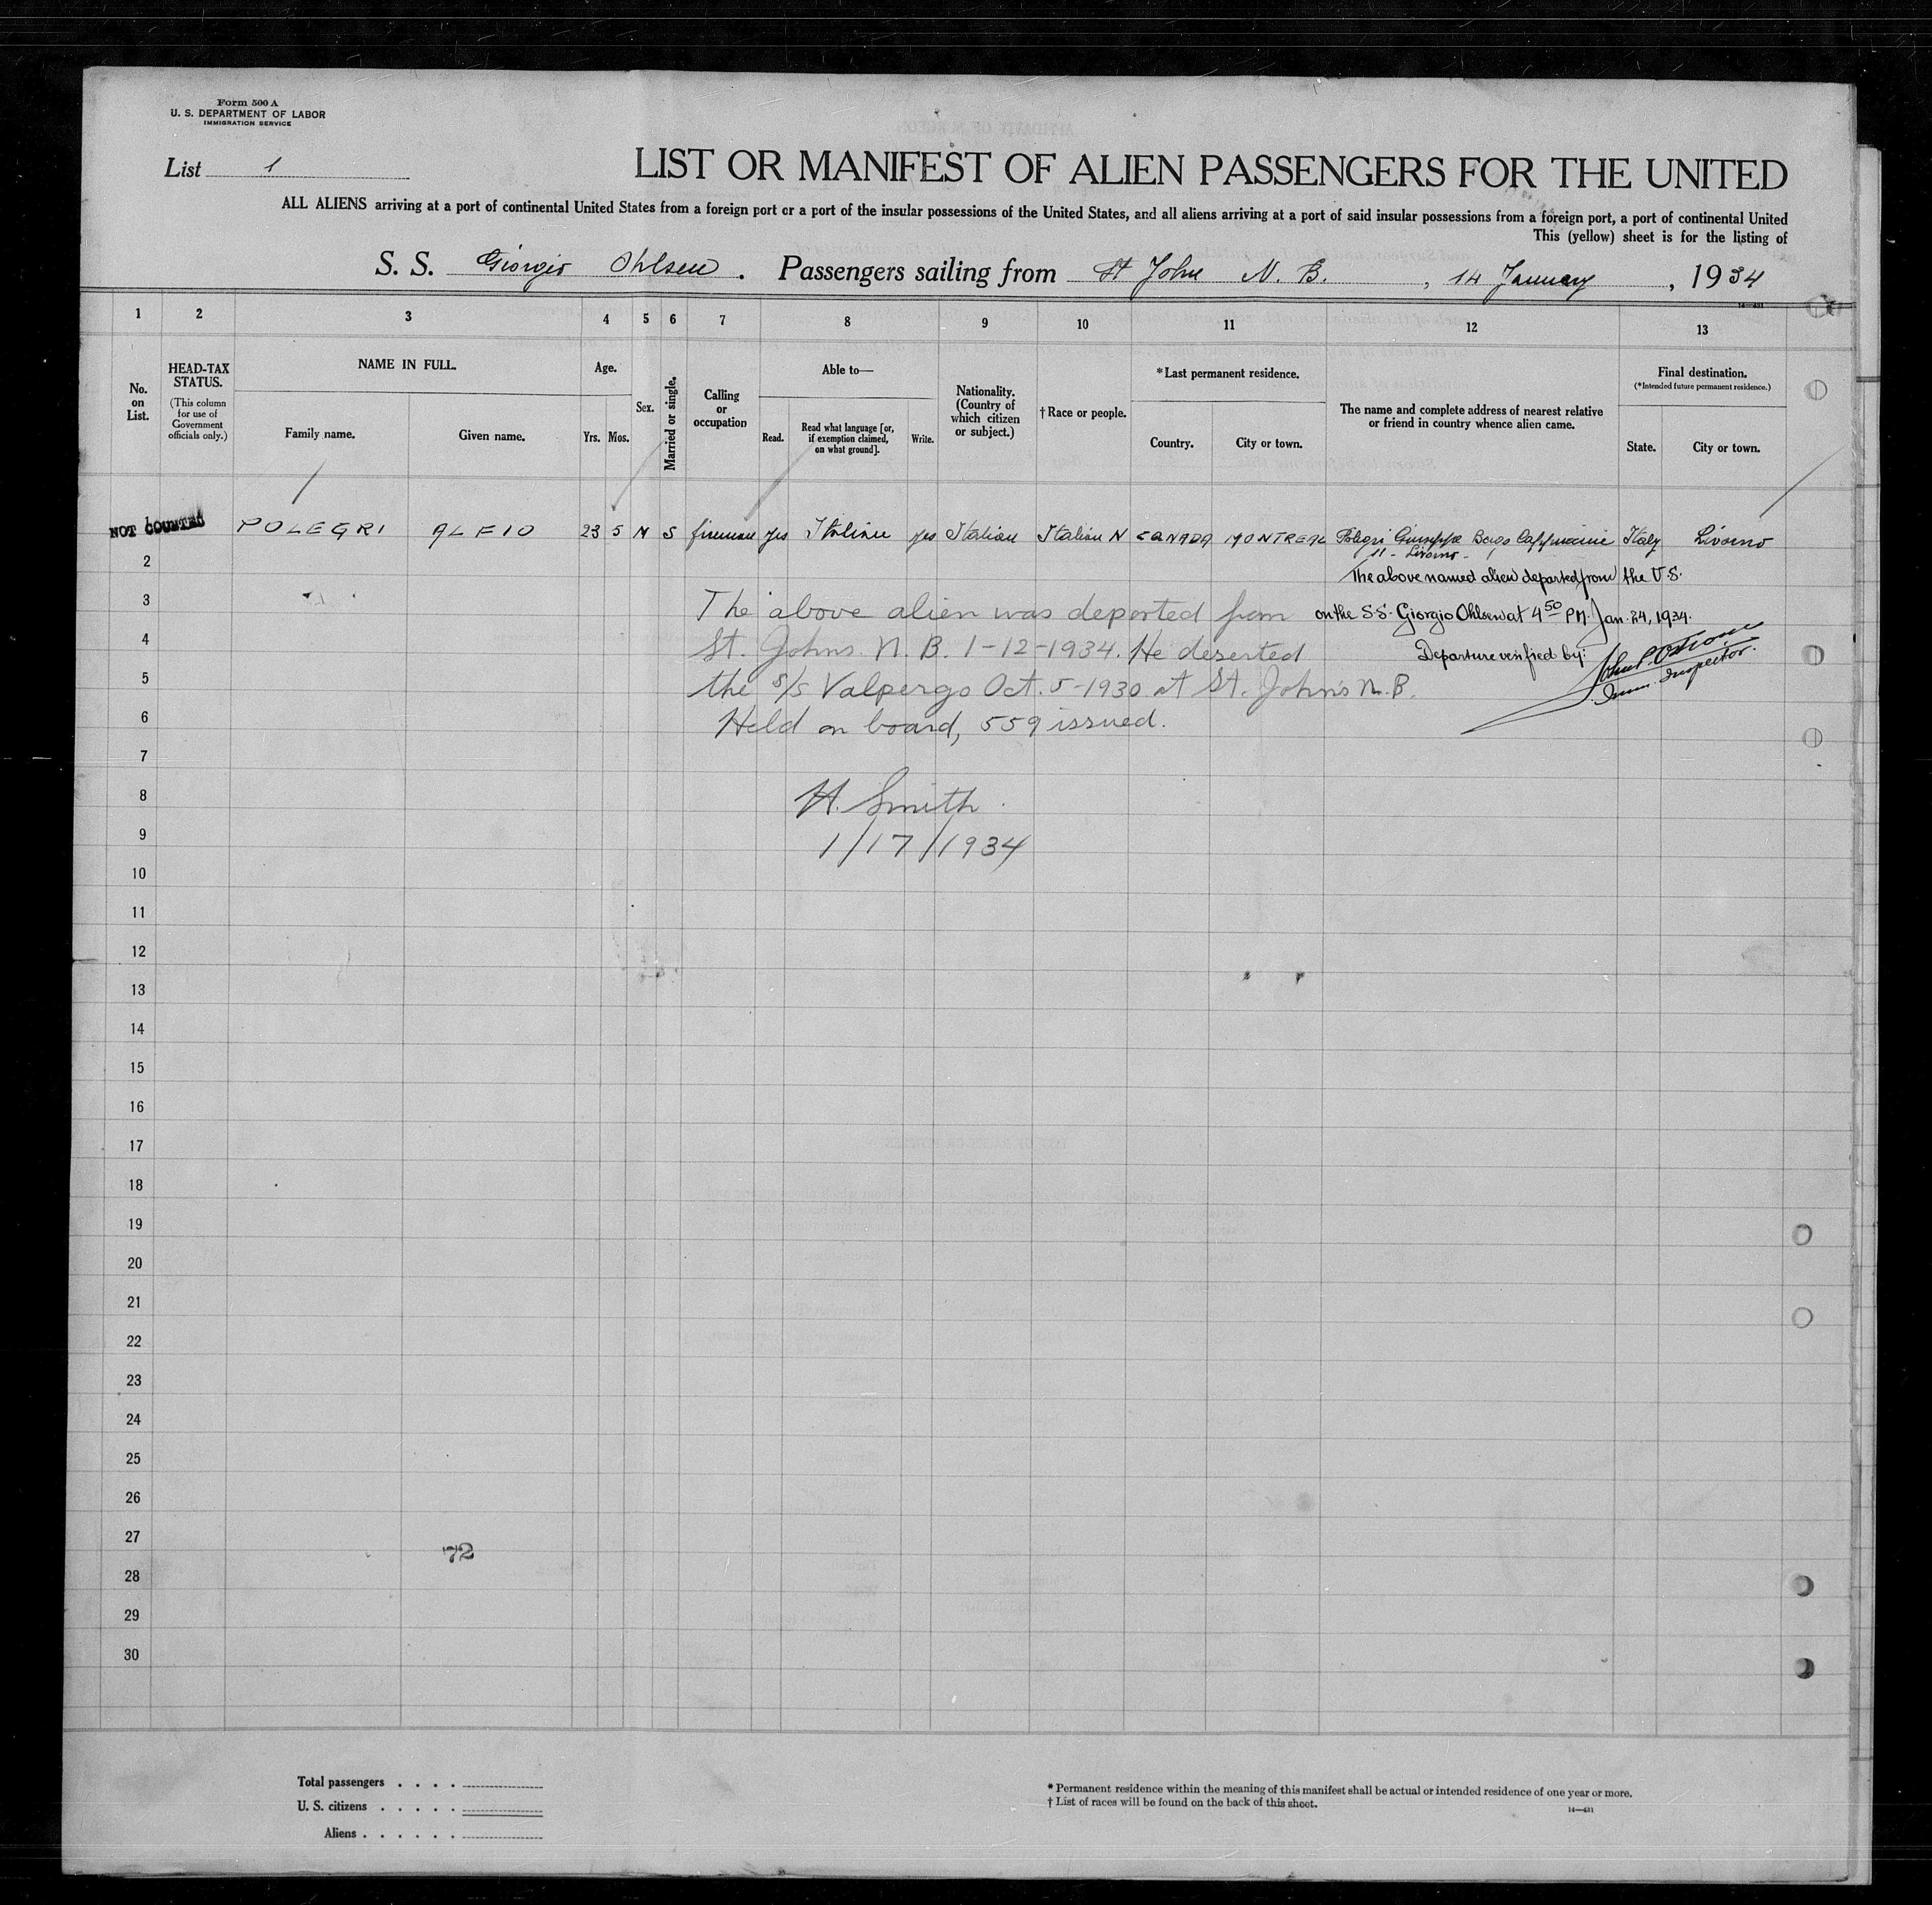 Form 500 A
U. S. DEPARTMENT OF LABOR
IMMIGRATION SERVICE
List 1
LIST OR MANIFEST OF ALIEN PASSENGERS FOR THE UNITED
ALL ALIENS arriving at a port of continental United States from a foreign port or a port of the insular possessions of the United States, and all aliens arriving at a port of said insular possessions from a foreign port, a port of continental United
This (yellow) sheet is for the listing of
S. S. Giorgio Ohlsen . Passengers sailing from St John N. B. , 14 January , 1934
14—431
1 2 3 4 5 6 7 8 9 10 11 12 13
No. on List.
HEAD-TAX STATUS.
(This column for use of Government officials only.)
NAME IN FULL.
Family name. Given name.
Age.
Yrs. Mos.
Sex.
Married or single.
Calling or occupation
Able to—
Read. Read what language [or, if exemption claimed, on what ground]. Write.
Nationality. (Country of which citizen or subject.)
† Race or people.
*Last permanent residence.
Country. City or town.
The name and complete address of nearest relative or friend in country whence alien came.
Final destination.
(*Intended future permanent residence.)
State. City or town.
NOT COUNTED
1 POLEGRI ALFIO 23 5 M S fireman yes Italian yes Italian Italian N CANADA MONTREAL Polegri Giuseppe Borgo Cappuccini Italy Livorno
11 - Livorno -
2
The above named alien departed from the U.S.
3
The above alien was deported from
on the S.S. Giorgio Ohlsen at 4 50 P.M. Jan. 24, 1934.
4
St. Johns N. B. 1-12-1934. He deserted
Departure verified by:
Imm. Inspector.
5
the s/s Valpergo Oct. 5-1930 at St. John's N. B.
6
Held on board, 559 issued.
7
8
H. Smith
9
1/17/1934
10
11
12
13
14
15
16
17
18
19
20
21
22
23
24
25
26
27
72
28
29
30
Total passengers . . . .
U. S. citizens . . . . .
Aliens . . . . . .
* Permanent residence within the meaning of this manifest shall be actual or intended residence of one year or more.
† List of races will be found on the back of this sheet.
14—431